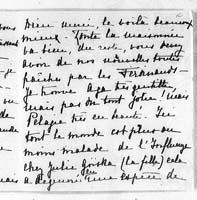 bien merci, le voilà beaucoup
mieux. Toute la maisonnée
va bien, du reste, vous devez
avoir de nos nouvelles toutes
fraîches par les Fernands-
Je trouve Aga très gentille
mais pas du tout jolie! Mais
Pelagie très en beauté. Ici
tout le monde est plus ou
moins malade de l'Influenza
chez Julie Gorska (la fille) cela
a dégénéré en une espèce de